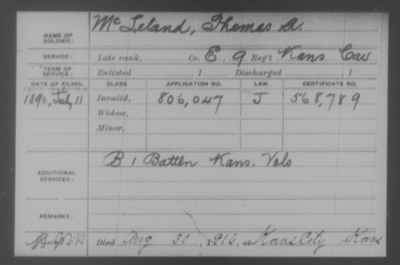 NAME OF SOLDIER: McLeland, Thomas A.
SERVICE: Late rank, Co. E. 9 Reg't Kans Cav
TERM OF SERVICE: Enlisted , 1 Discharged , 1
DATE OF FILING. CLASS. APPLICATION NO. LAW. CERTIFICATE NO.
1890, July 11 Invalid, 806,047 J 568,789
Widow,
Minor,
ADDITIONAL SERVICES: B 1 Batten Kans. Vols
REMARKS:
Died Aug 1916, at Kans City Kans